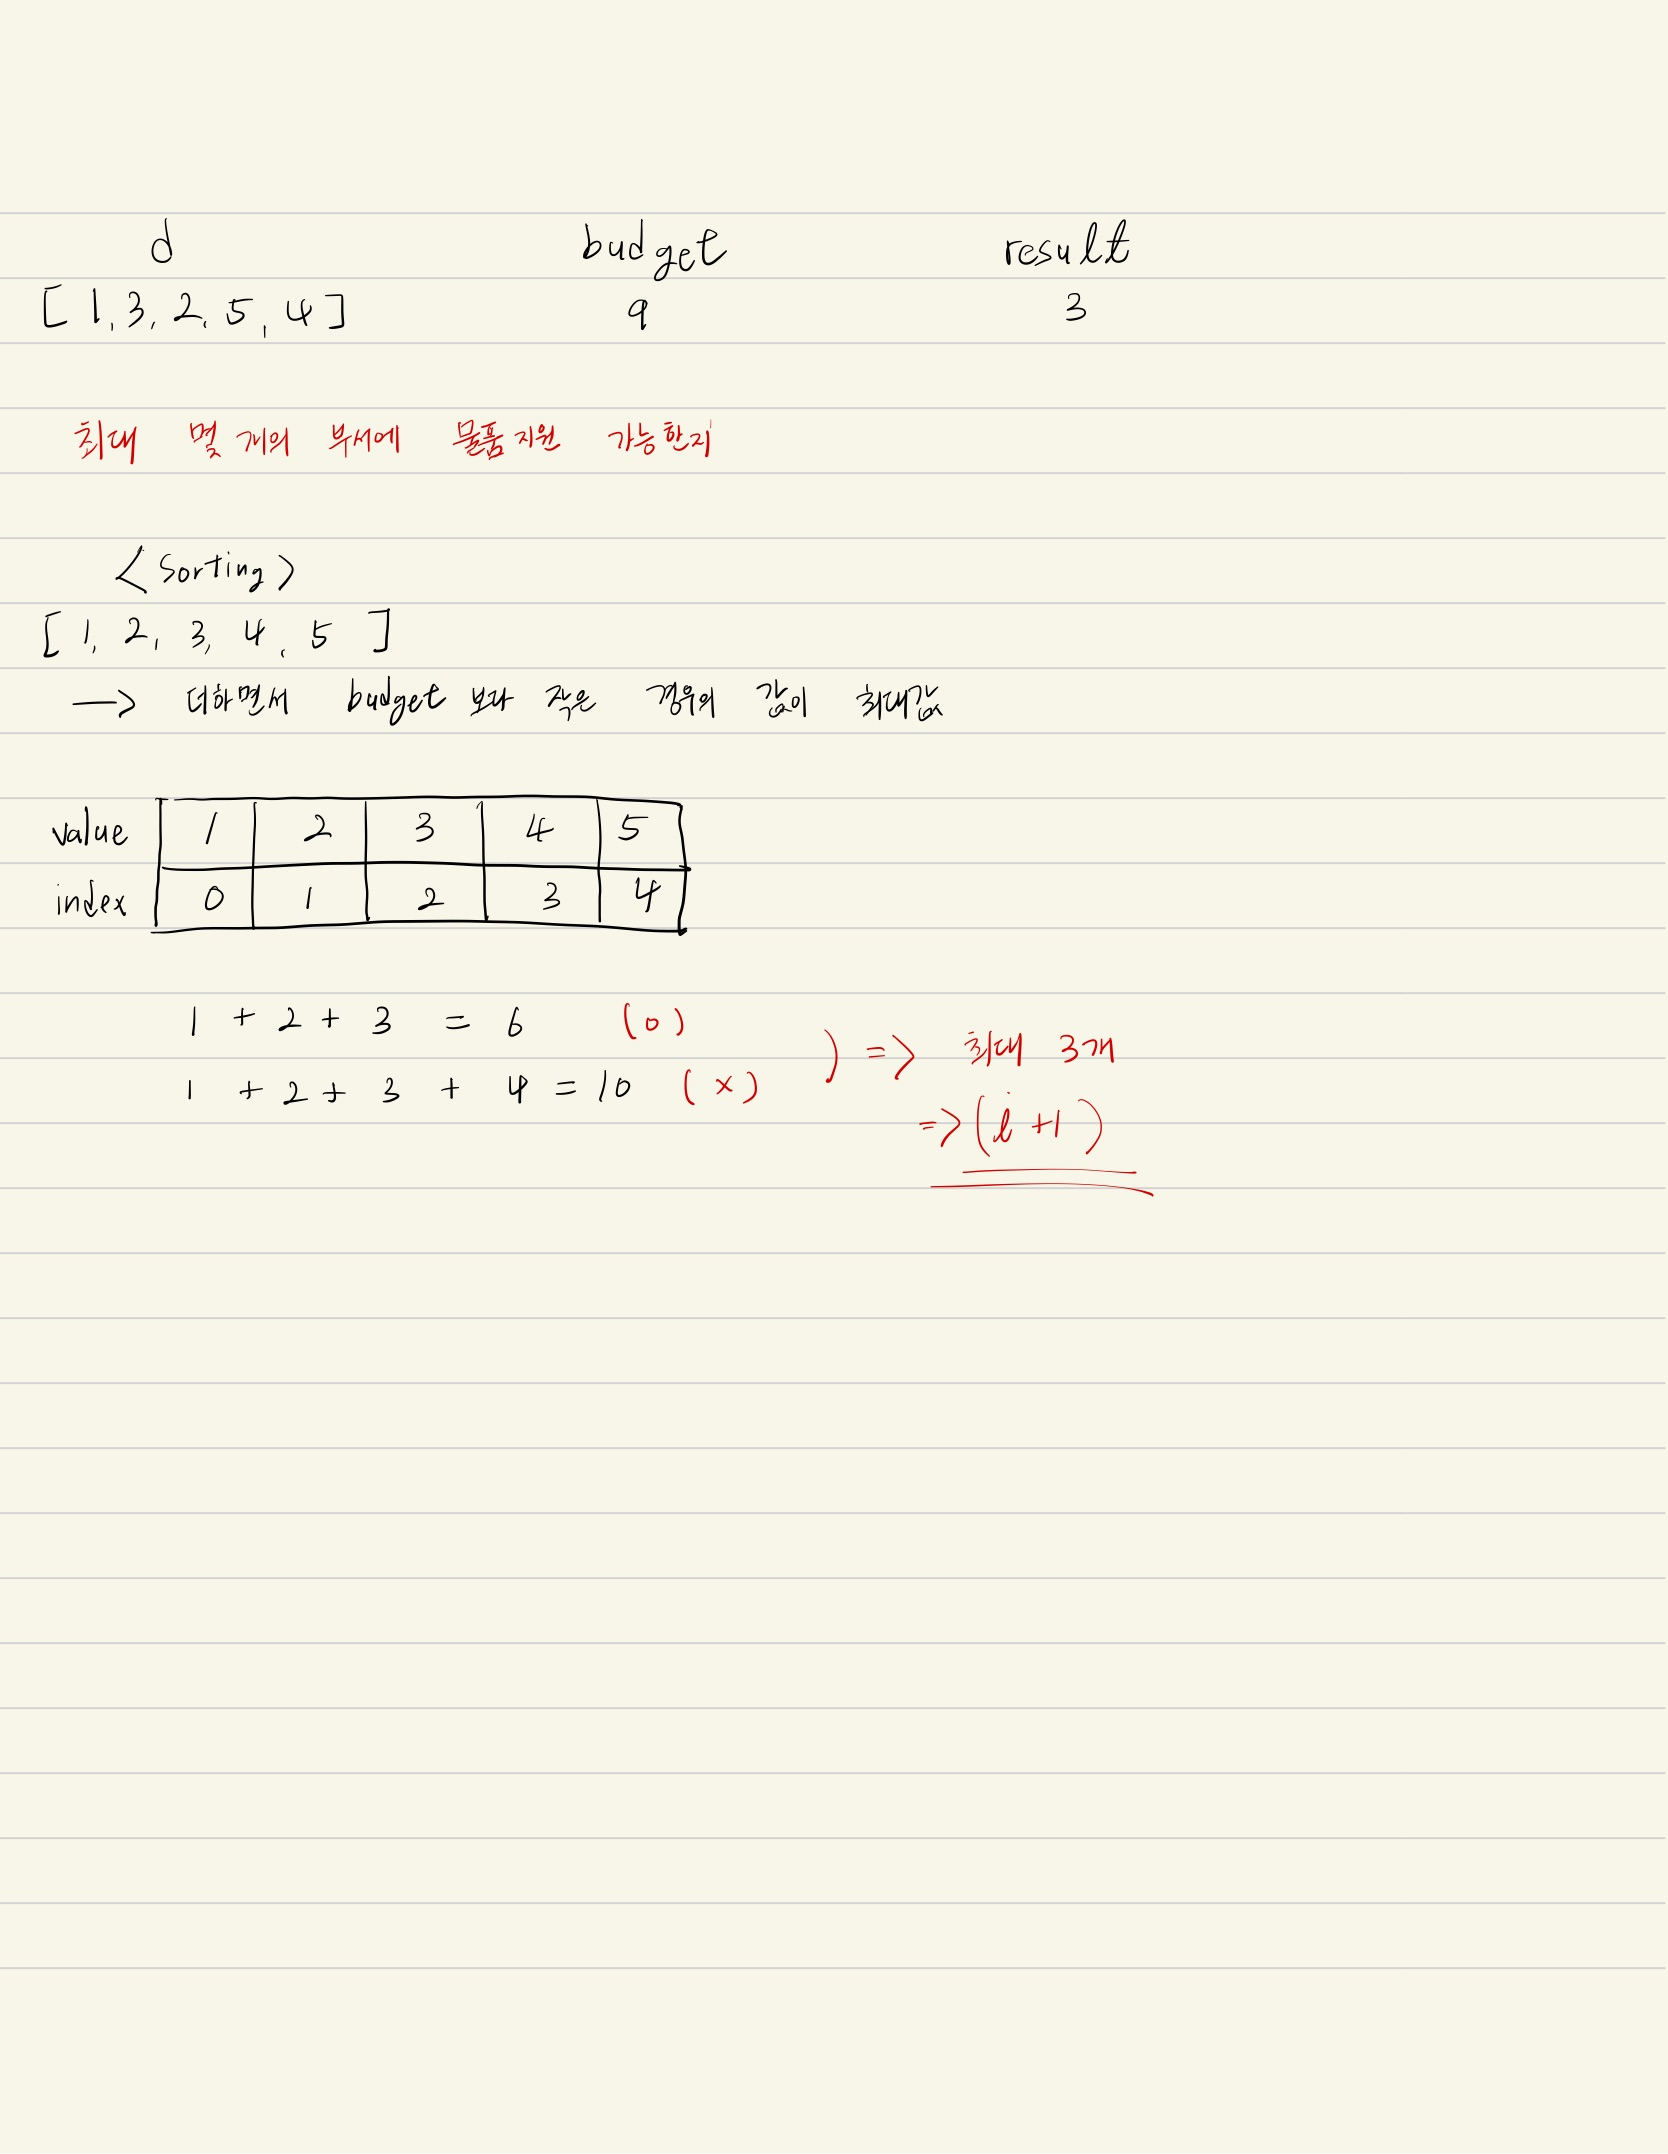 d budget result
[ 1, 3, 2, 5, 4 ] 9 3
최대 몇 개의 부서에 물품 지원 가능한지
< Sorting >
[ 1, 2, 3, 4, 5 ]
—> 더하면서 budget 보다 작은 경우의 값이 최대값
value 1 2 3 4 5
index 0 1 2 3 4
1 + 2 + 3 = 6 (o)
1 + 2 + 3 + 4 = 10 (x)
) => 최대 3개
=> (i +1)